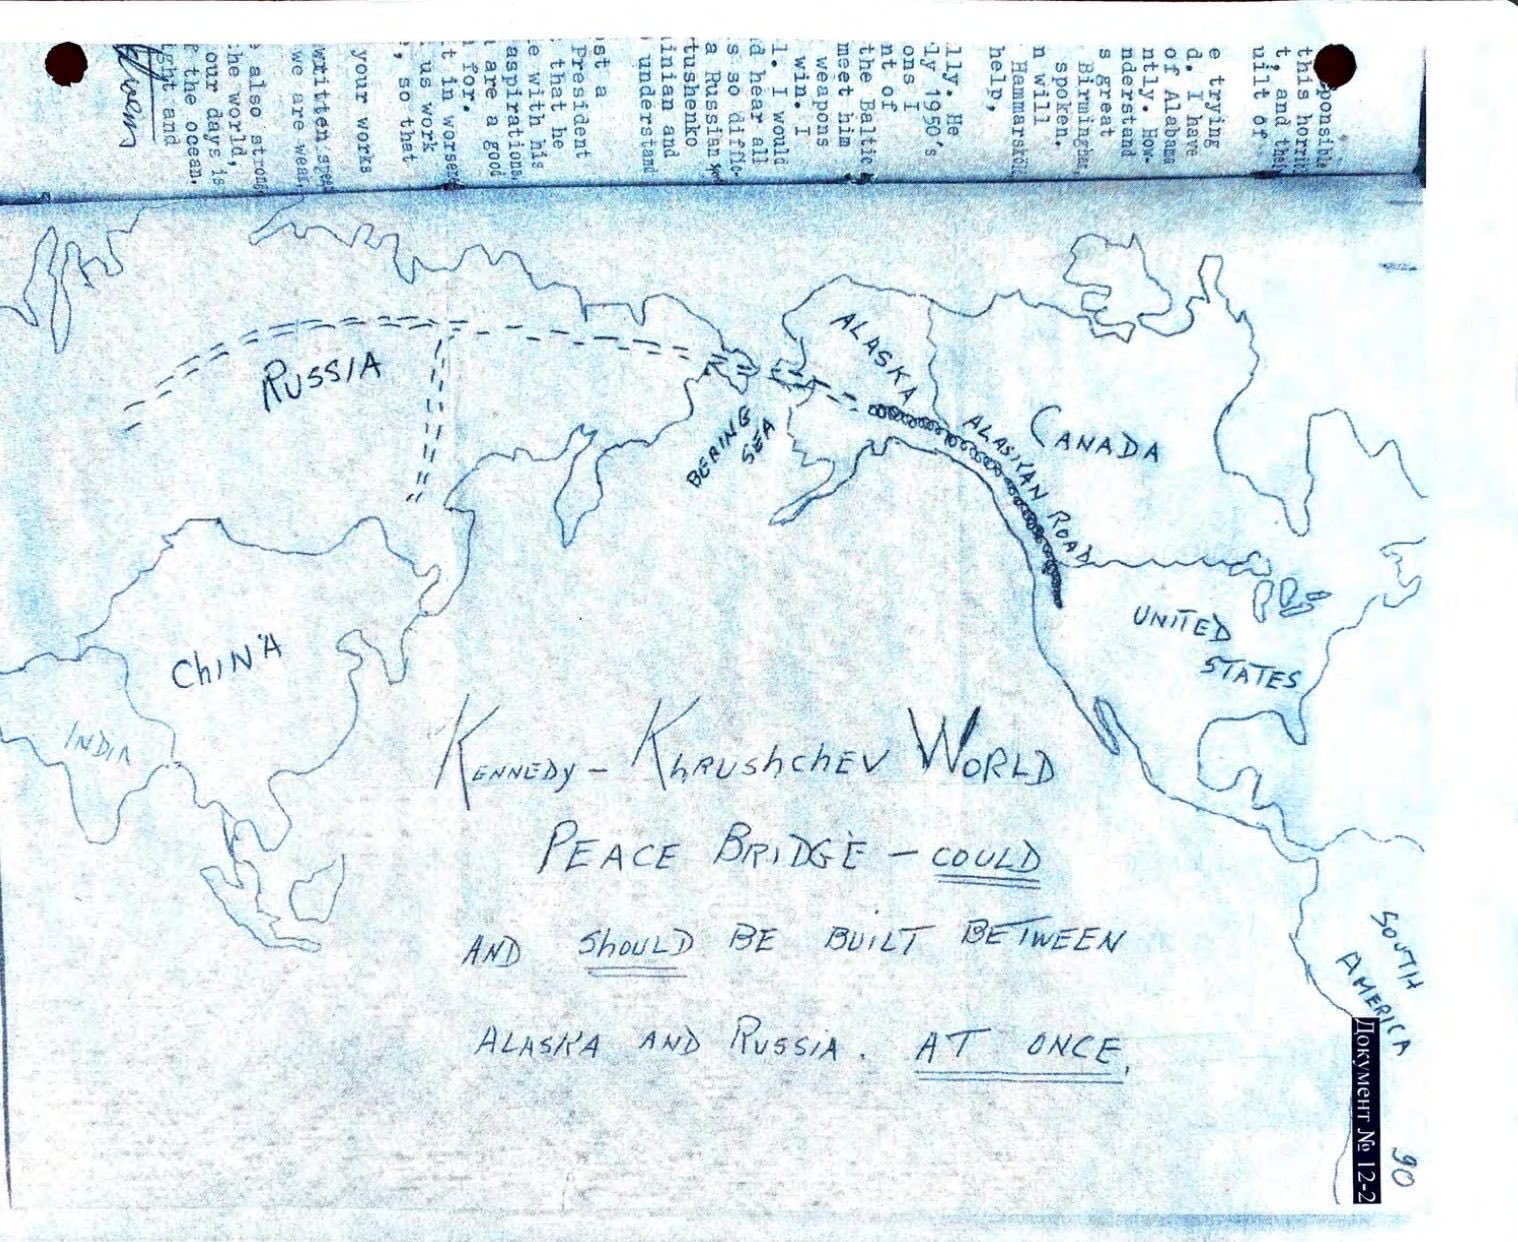 ponsible
this horrib
t, and thei
uilt of
e trying
d. I have
of Alabama
ntly. How-
nderstand
s great
Birmingham,
spoken.
n will
Hammarskjöl
help,
lly. He
ly 1950's
ons I
nt of
the Baltic
meet him
weapons
win. I
l. I would
d hear all
s so diffic-
a Russian
tushenko
inian and
understand
st a
President
that he
e with his
aspirations,
are a good
for.
t in worsen
us work
, so that
your works
written spea
we are weak,
also strong
he world,
our days is
the ocean.
ght and
RUSSIA
ALASKA
BERING
SEA
ALASKAN ROAD
CANADA
UNITED
STATES
CHINA
INDIA
KENNEDY – KHRUSHCHEV WORLD
PEACE BRIDGE – COULD
AND SHOULD BE BUILT BETWEEN
ALASKA AND RUSSIA. AT ONCE.
SOUTH
AMERICA
Документ № 12-2
90